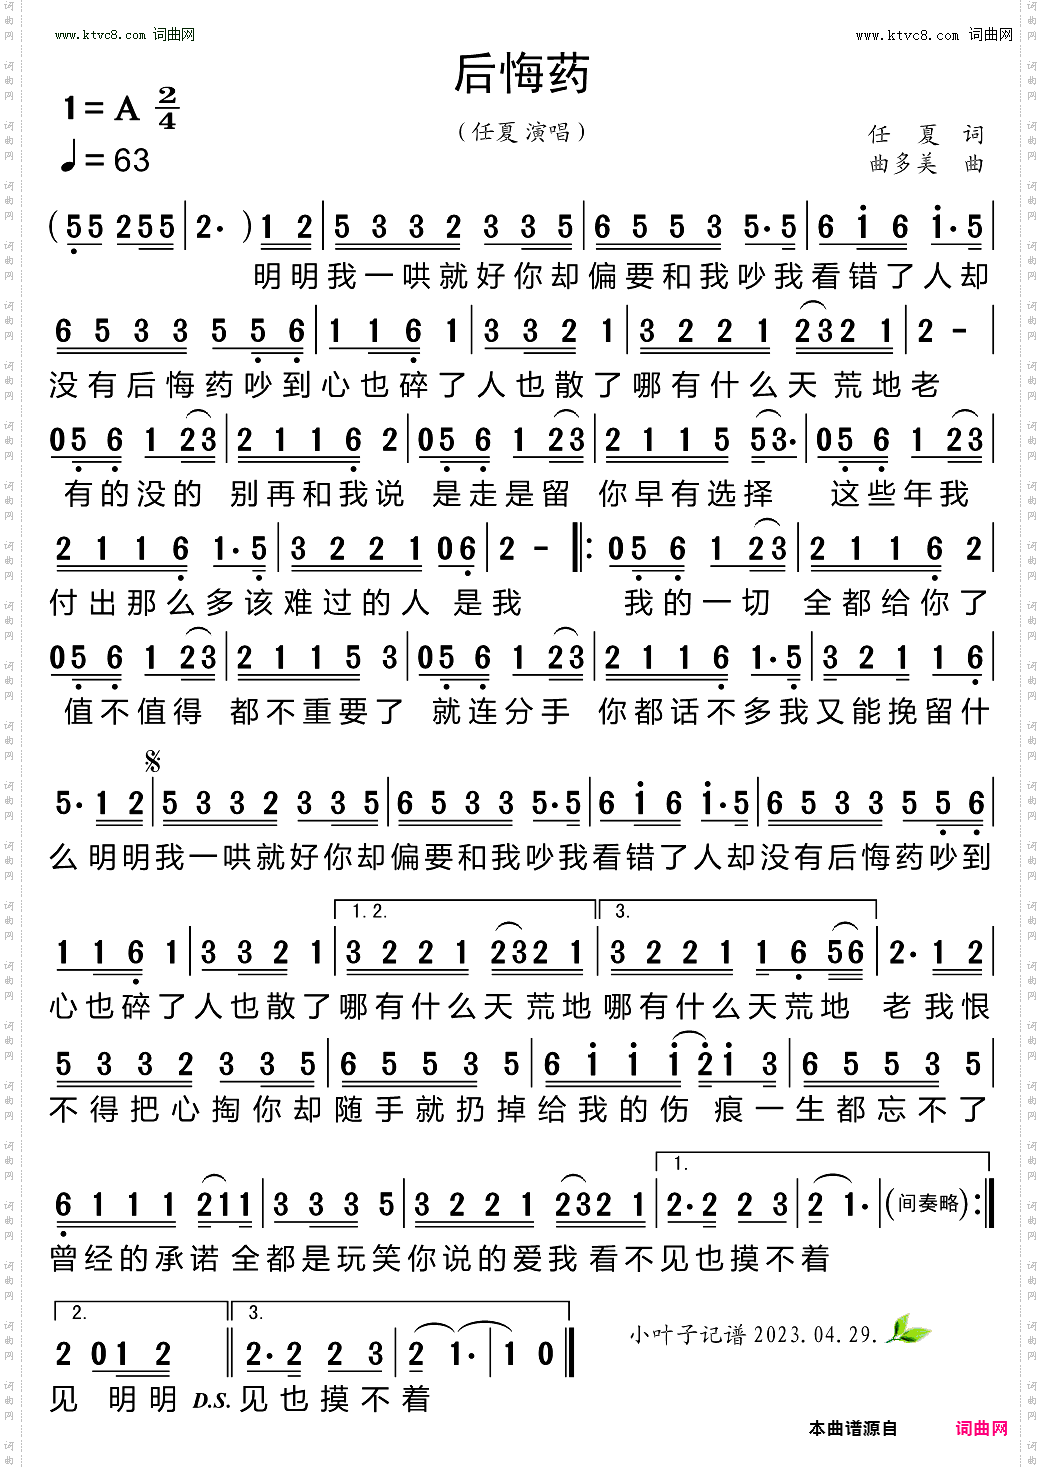 www.ktvc8.com 词曲网
www.ktvc8.com 词曲网
后悔药
1=A 2/4
（任夏 演唱）
任 夏 词
♩=63
曲多美 曲
( 55 255 | 2· ) 12 | 5332 335 | 6553 5·5 | 616 1·5 |
明明我一哄就好你却偏要和我吵我看错了人却
6533 556 | 116 1 | 332 1 | 3221 2321 | 2 - |
没有后悔药吵到心也碎了人也散了哪有什么天 荒地老
056 123 | 2116 2 | 056 123 | 2115 53· | 056 123 |
有的没的 别再和我说 是走是留 你早有选择 这些年我
2116 1·5 | 3221 06 | 2 - ‖: 056 123 | 2116 2 |
付出那么多该难过的人 是我 我的一切 全都给你了
056 123 | 2115 3 | 056 123 | 2116 1·5 | 321 16 |
值不值得 都不重要了 就连分手 你都话不多我又能挽留什
5· 12 | 5332 335 | 6553 5·5 | 616 1·5 | 6533 556 |
么 明明我一哄就好你却偏要和我吵我看错了人却没有后悔药吵到
1.2.
3.
116 1 | 332 1 | 3221 2321 | 3221 1656 | 2· 12 |
心也碎了人也散了哪有什么天 荒地 哪有什么天荒地 老 我恨
5332 335 | 6553 5 | 6111 21 3 | 6553 5 |
不得把心掏你却随手就扔掉给我的伤 痕一生都忘不了
1.
6111 2111 | 333 5 | 3221 2321 | 2·2 23 | 2 1· | (间奏略) :‖
曾经的承诺 全都是玩笑你说的爱我 看不见也摸不着
2.
3.
2 012 ‖ 2·2 23 | 2 1· | 1 0 ‖
见 明明 D.S. 见也摸不着
小叶子记谱 2023.04.29.
本曲谱源自 词曲网